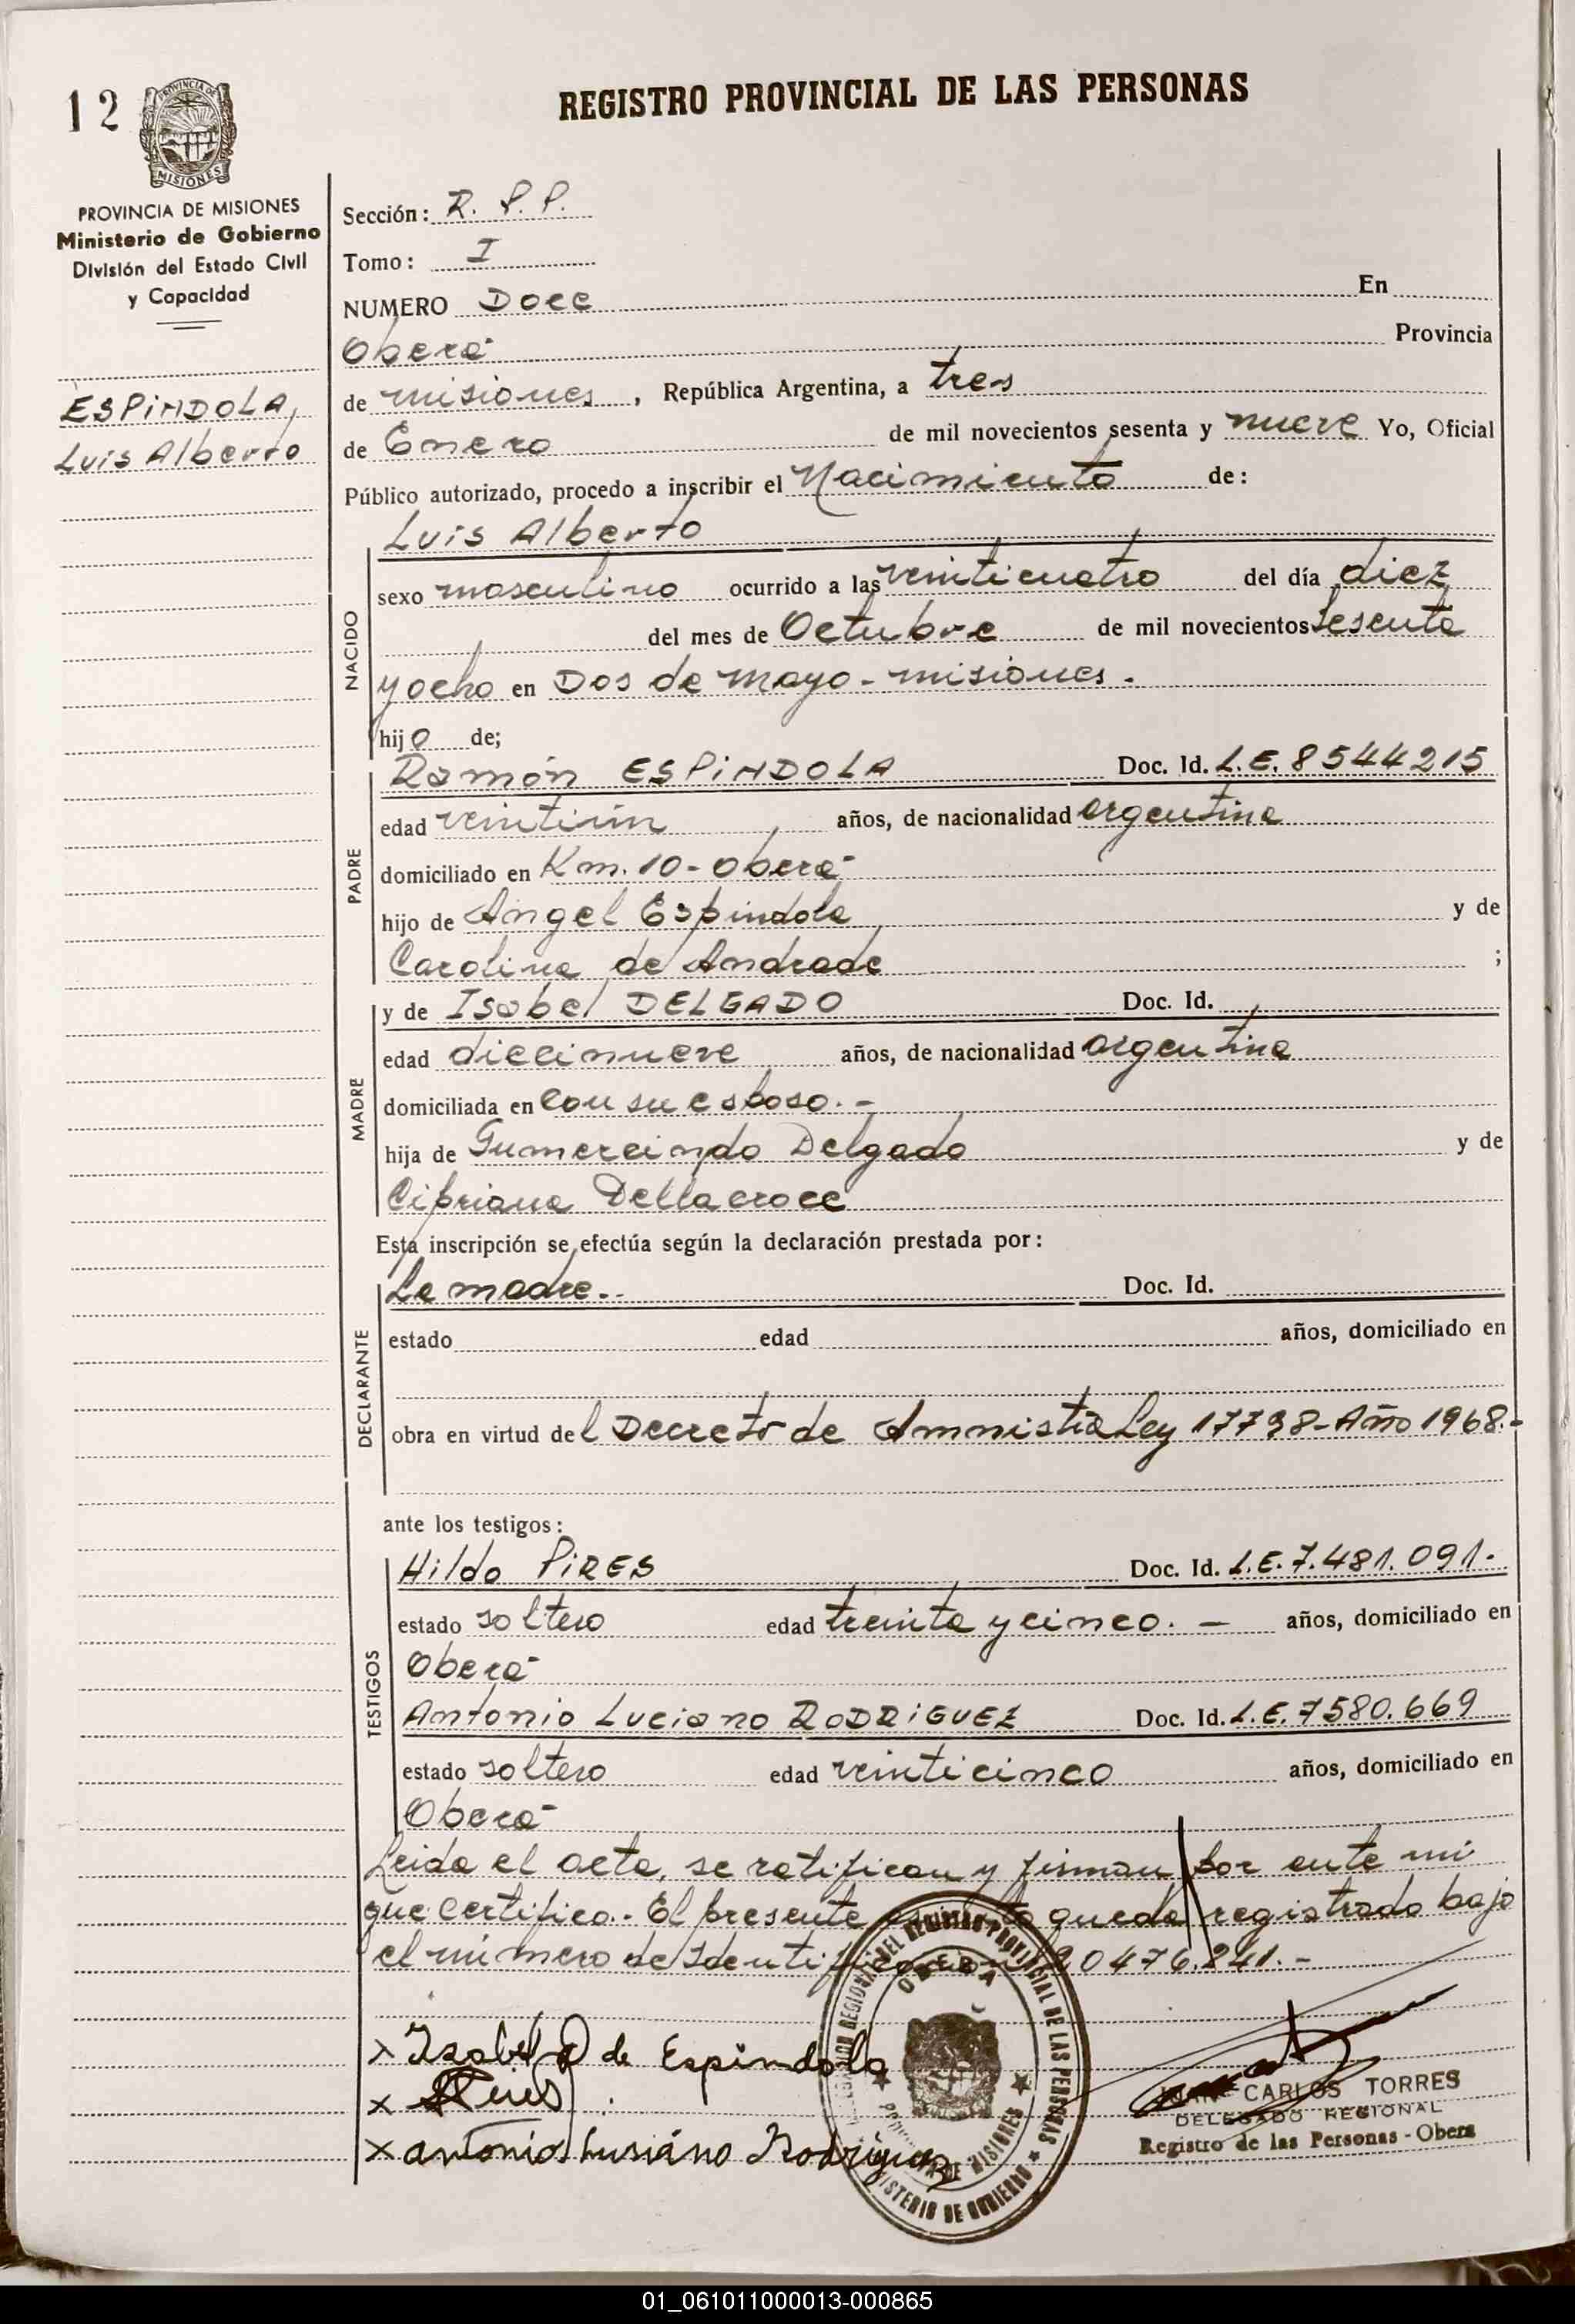 12
REGISTRO PROVINCIAL DE LAS PERSONAS
PROVINCIA DE
MISIONES
PROVINCIA DE MISIONES
Ministerio de Gobierno
División del Estado Civil
y Capacidad
ESPINDOLA,
Luis Alberto
Sección: R. P. P.
Tomo: I
NUMERO Doce En
Oberá Provincia
de misiones, República Argentina, a tres
de Enero de mil novecientos sesenta y nueve Yo, Oficial
Público autorizado, procedo a inscribir el Nacimiento de:
NACIDO
Luis Alberto
sexo masculino ocurrido a las veinticuatro del día diez
del mes de Octubre de mil novecientos sesenta
y ocho en Dos de mayo - misiones.
hijo de;
PADRE
Ramón ESPINDOLA Doc. Id. L.E. 8544215
edad veintiún años, de nacionalidad argentina
domiciliado en Km. 10 - Oberá
hijo de Angel Espindola y de
Carolina de Andrade ;
MADRE
y de Isabel DELGADO Doc. Id.
edad diecinueve años, de nacionalidad argentina
domiciliada en con su esposo. -
hija de Gumercindo Delgado y de
Cipriana Dellacroce
Esta inscripción se efectúa según la declaración prestada por:
DECLARANTE
La madre.- Doc. Id.
estado edad años, domiciliado en
obra en virtud del Decreto de Amnistia Ley 17798 - Año 1968.-
ante los testigos:
TESTIGOS
Hildo PIRES Doc. Id. L.E. 7.481.091.-
estado soltero edad treinta y cinco. - años, domiciliado en
Oberá
Antonio Luciano RODRIGUEZ Doc. Id. L.E. 7580.669
estado soltero edad veinticinco años, domiciliado en
Oberá
Leida el acta, se ratifican y firman por ante mi
que certifico.- El presente queda registrado bajo
el número de Identificación 20476.241.-
x Isabel D de Espindola
x
x antonio Lusiano Rodriguez
DEL REGISTRO PROVINCIAL DE LAS PERSONAS
OBERA
DE MISIONES
MINISTERIO DE GOBIERNO
CARLOS TORRES
DELEGADO REGIONAL
Registro de las Personas - Obera
01_061011000013-000865